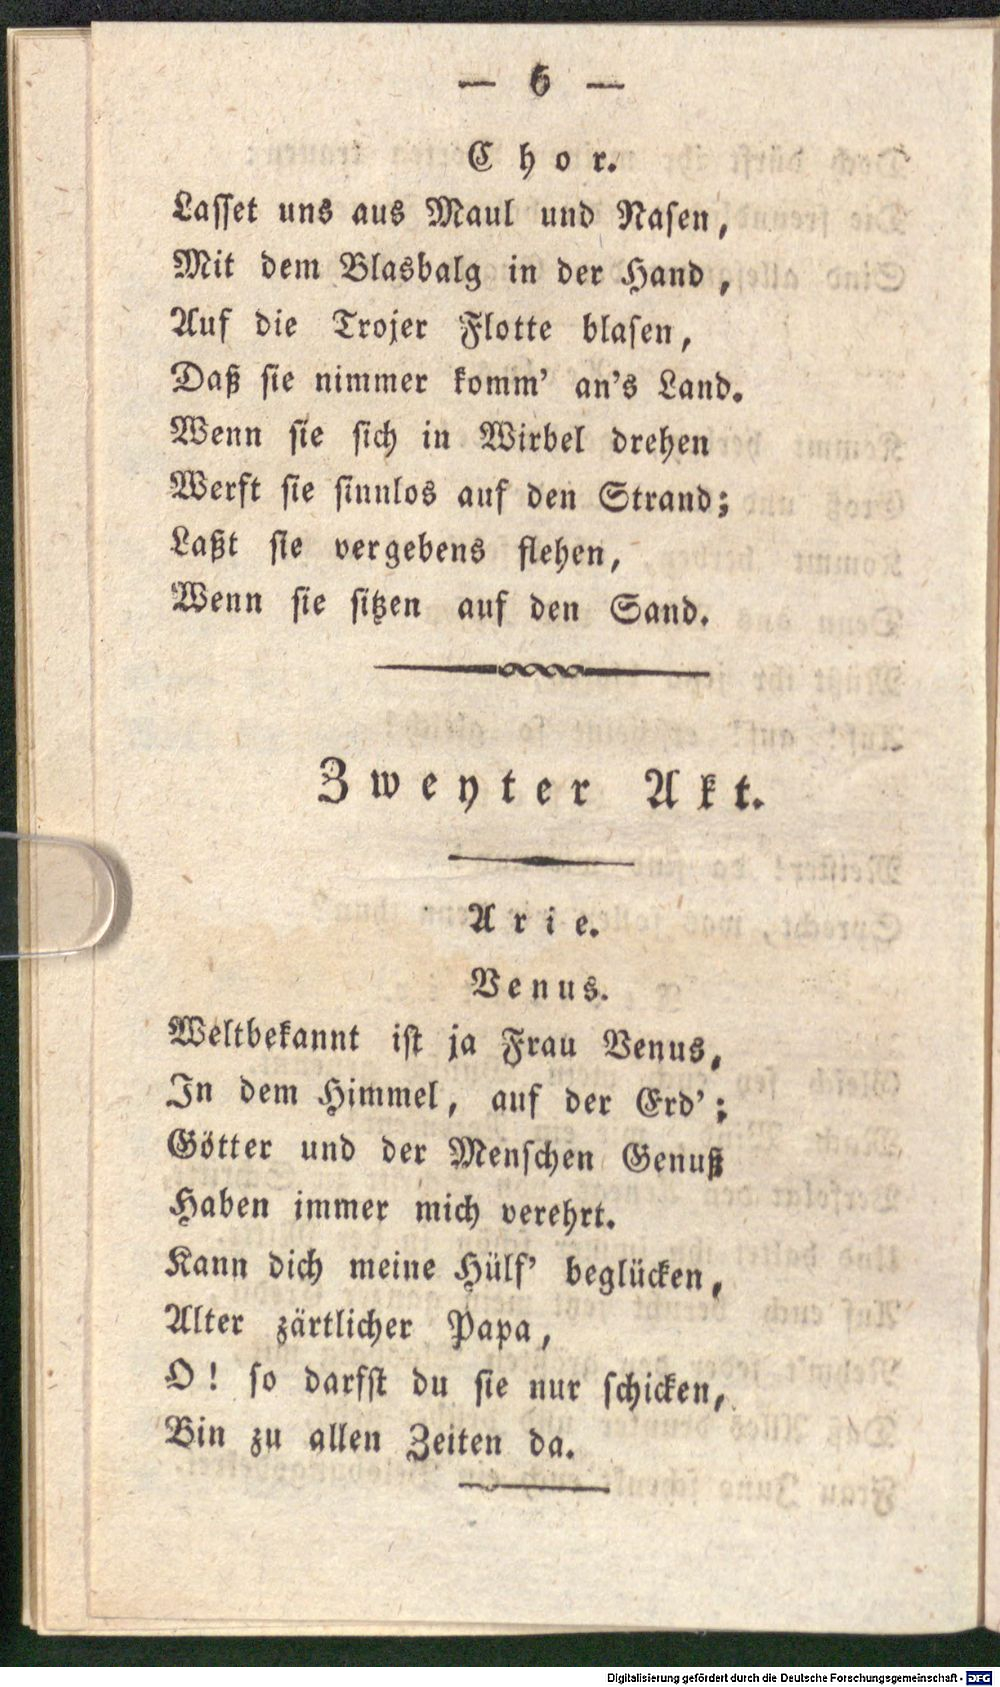 — 6 —
Chor.
Lasset uns aus Maul und Nasen,
Mit dem Blasbalg in der Hand,
Auf die Trojer Flotte blasen,
Daß sie nimmer komm' an's Land.
Wenn sie sich in Wirbel drehen
Werft sie sinnlos auf den Strand;
Laßt sie vergebens flehen,
Wenn sie sitzen auf den Sand.
Zweyter Akt.
Arie.
Venus.
Weltbekannt ist ja Frau Venus,
In dem Himmel, auf der Erd';
Götter und der Menschen Genuß
Haben immer mich verehrt.
Kann dich meine Hülf' beglücken,
Alter zärtlicher Papa,
O! so darfst du sie nur schicken,
Bin zu allen Zeiten da.
Digitalisierung gefördert durch die Deutsche Forschungsgemeinschaft - DFG